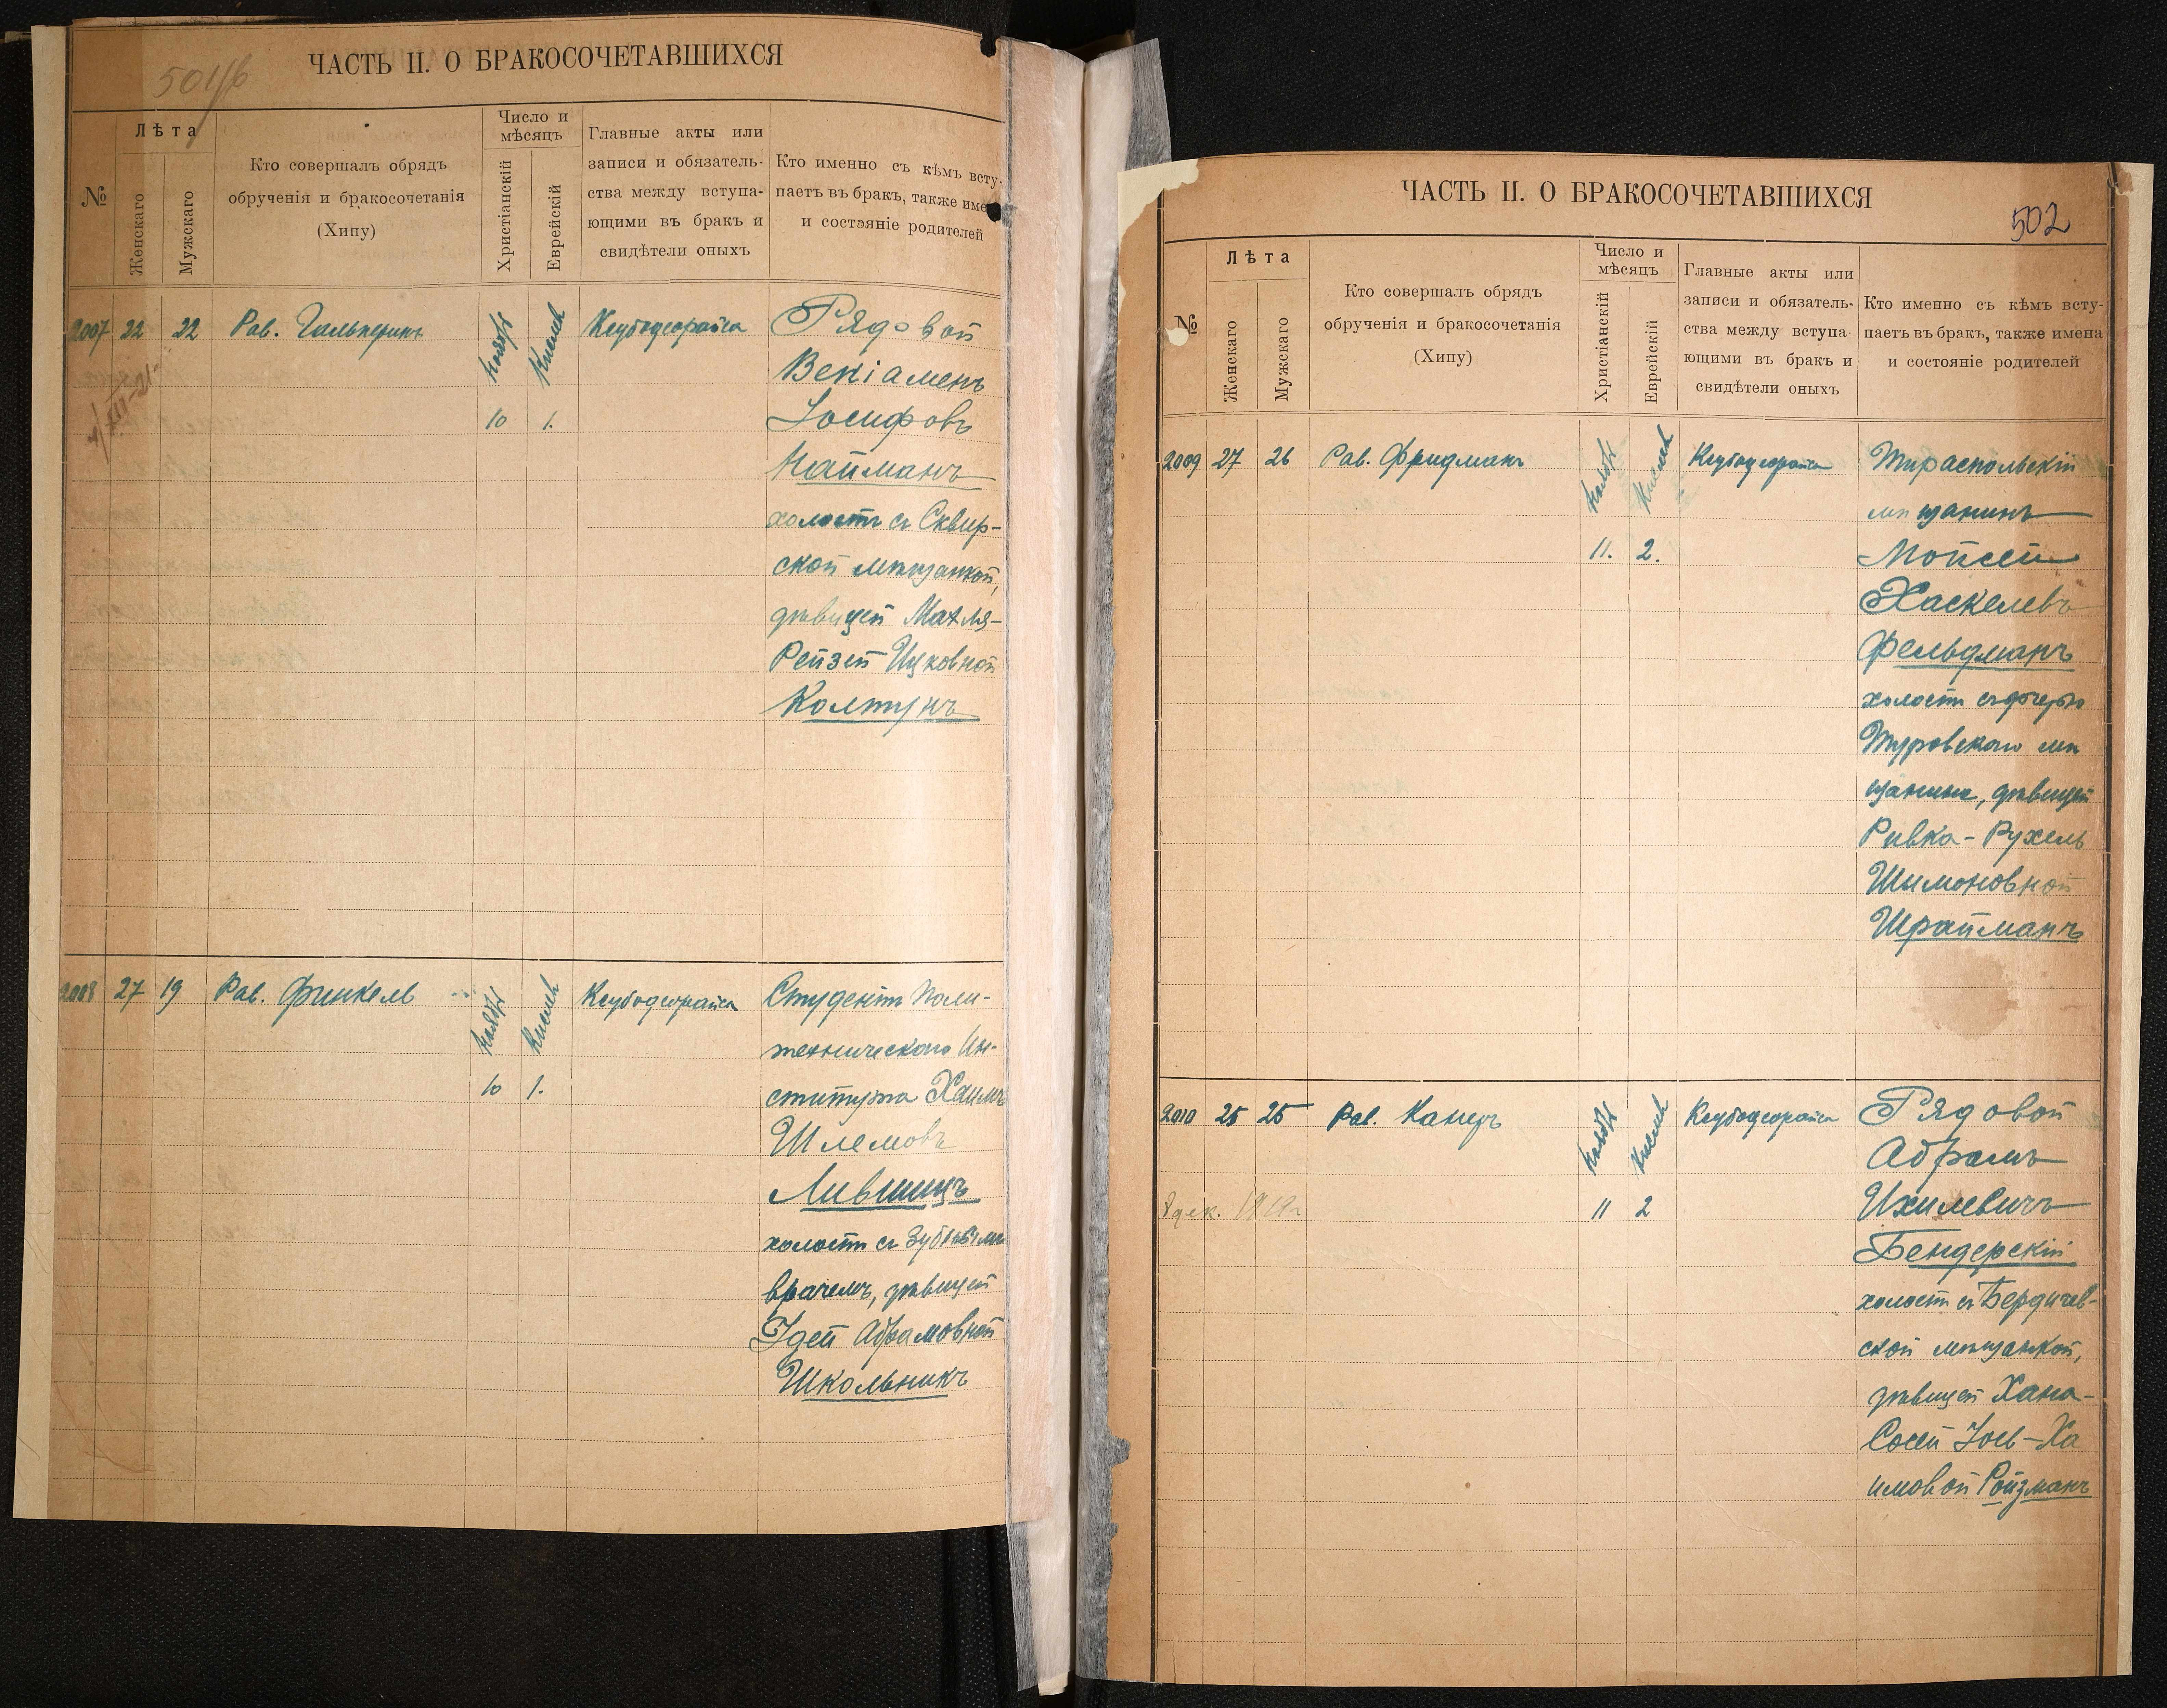 501/б
ЧАСТЬ II. О БРАКОСОЧЕТАВШИХСЯ
№
Лѣта
Женскаго
Мужскаго
Кто совершалъ обрядъ
обрученія и бракосочетанія
(Хипу)
Число и
мѣсяцъ
Христіанскій
Еврейскій
Главные акты или
записи и обязатель-
ства между вступа-
ющими въ бракъ и
свидѣтели оныхъ
Кто именно съ кѣмъ всту-
паетъ въ бракъ, также име
и состояніе родителей
2007 22 22 Рав. Гальперинъ Ноябрь Кислевъ Ксубодеорайса Рядовой
Веніаменъ
10 1. Іосифовъ
Найманъ
холостъ съ Сквир-
ской мѣщанкой,
дѣвицей Махля-
Рейзей Ицковной
Колтунъ
2008 27 19 Рав. Финкель Ноябрь Кислевъ Ксубодеорайса Студентъ Поли-
техническаго Ин-
10 1. ститута Хаимъ
Шлемовъ
Лившицъ
холостъ съ зубнымъ
врачемъ, дѣвицей
Идей Абрамовной
Школьникъ
ЧАСТЬ II. О БРАКОСОЧЕТАВШИХСЯ
502
№
Лѣта
Женскаго
Мужскаго
Кто совершалъ обрядъ
обрученія и бракосочетанія
(Хипу)
Число и
мѣсяцъ
Христіанскій
Еврейскій
Главные акты или
записи и обязатель-
ства между вступа-
ющими въ бракъ и
свидѣтели оныхъ
Кто именно съ кѣмъ всту-
паетъ въ бракъ, также имена
и состояніе родителей
2009 27 26 Рав. Фридманъ Ноябрь Кислевъ Ксубодеорайса Тираспольскій
мѣщанинъ
11. 2. Мойсей
Хаскелевъ
Фельдманъ
холостъ съ дочерью
Туровскаго мѣ
щанина, дѣвицей
Ривка-Рухель
Шимоновной
Шрайманъ
2010 25 25 Рав. Канеръ Ноябрь Кислевъ Ксубодеорайса Рядовой
Абрамъ
11 2 Ихилевичъ
Бендерскій
холостъ съ Бердичев-
ской мѣщанкой,
дѣвицей Хана-
Сосей Іось-Ха
имовой Ройзманъ